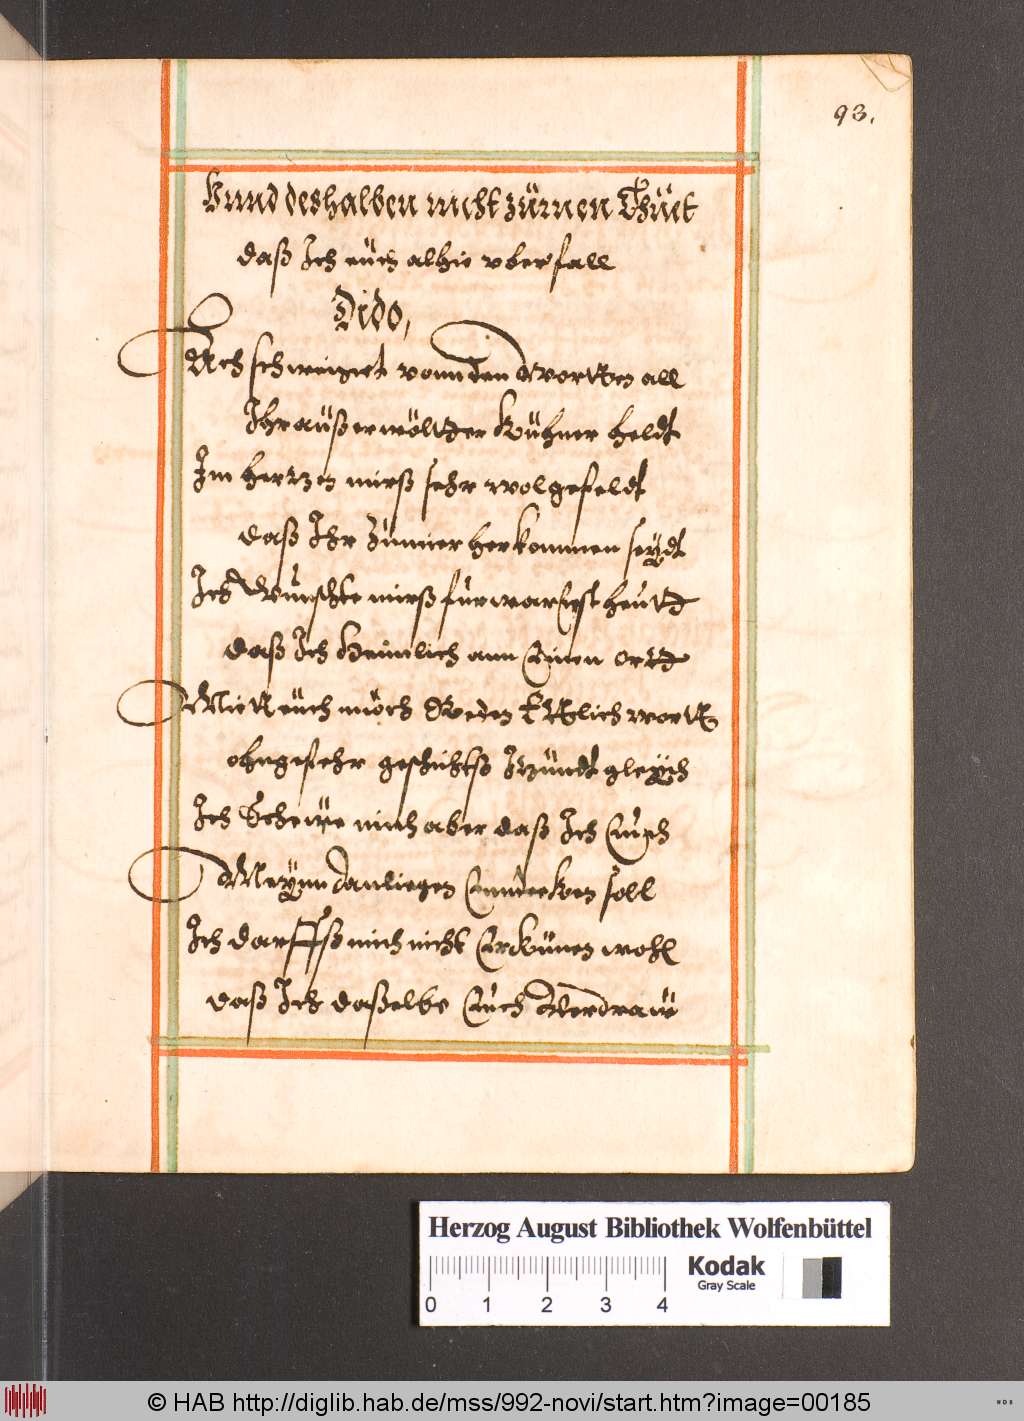 93.
Vnnd deshalben nicht zürnen Thüet
daß Ich eüch alhie vberfall
Dido,
Ach schweiget vonn den Wortten all
Ihr außerwöltter Kühner heldt
Im hertzen mirß sehr wolgefeldt
daß Ihr Zu mier herkommen seydt
Ich Wünschte mirß fürwar erst heütt
daß Ich Heimlich ann Einen ortt
Mitt eüch möch Reden Ettlich wortt
ohngefehr geschichtß Itzündt gleÿch
Ich Scheüe mich aber daß Ich Eüch
Meÿnn anliegen Enndecken soll
Ich darffß mich nicht Erkünen wohl
daß Ich daßelbe Eüch Verdraw
Herzog August Bibliothek Wolfenbüttel
Kodak
Gray Scale
0 1 2 3 4
© HAB http://diglib.hab.de/mss/992-novi/start.htm?image=00185